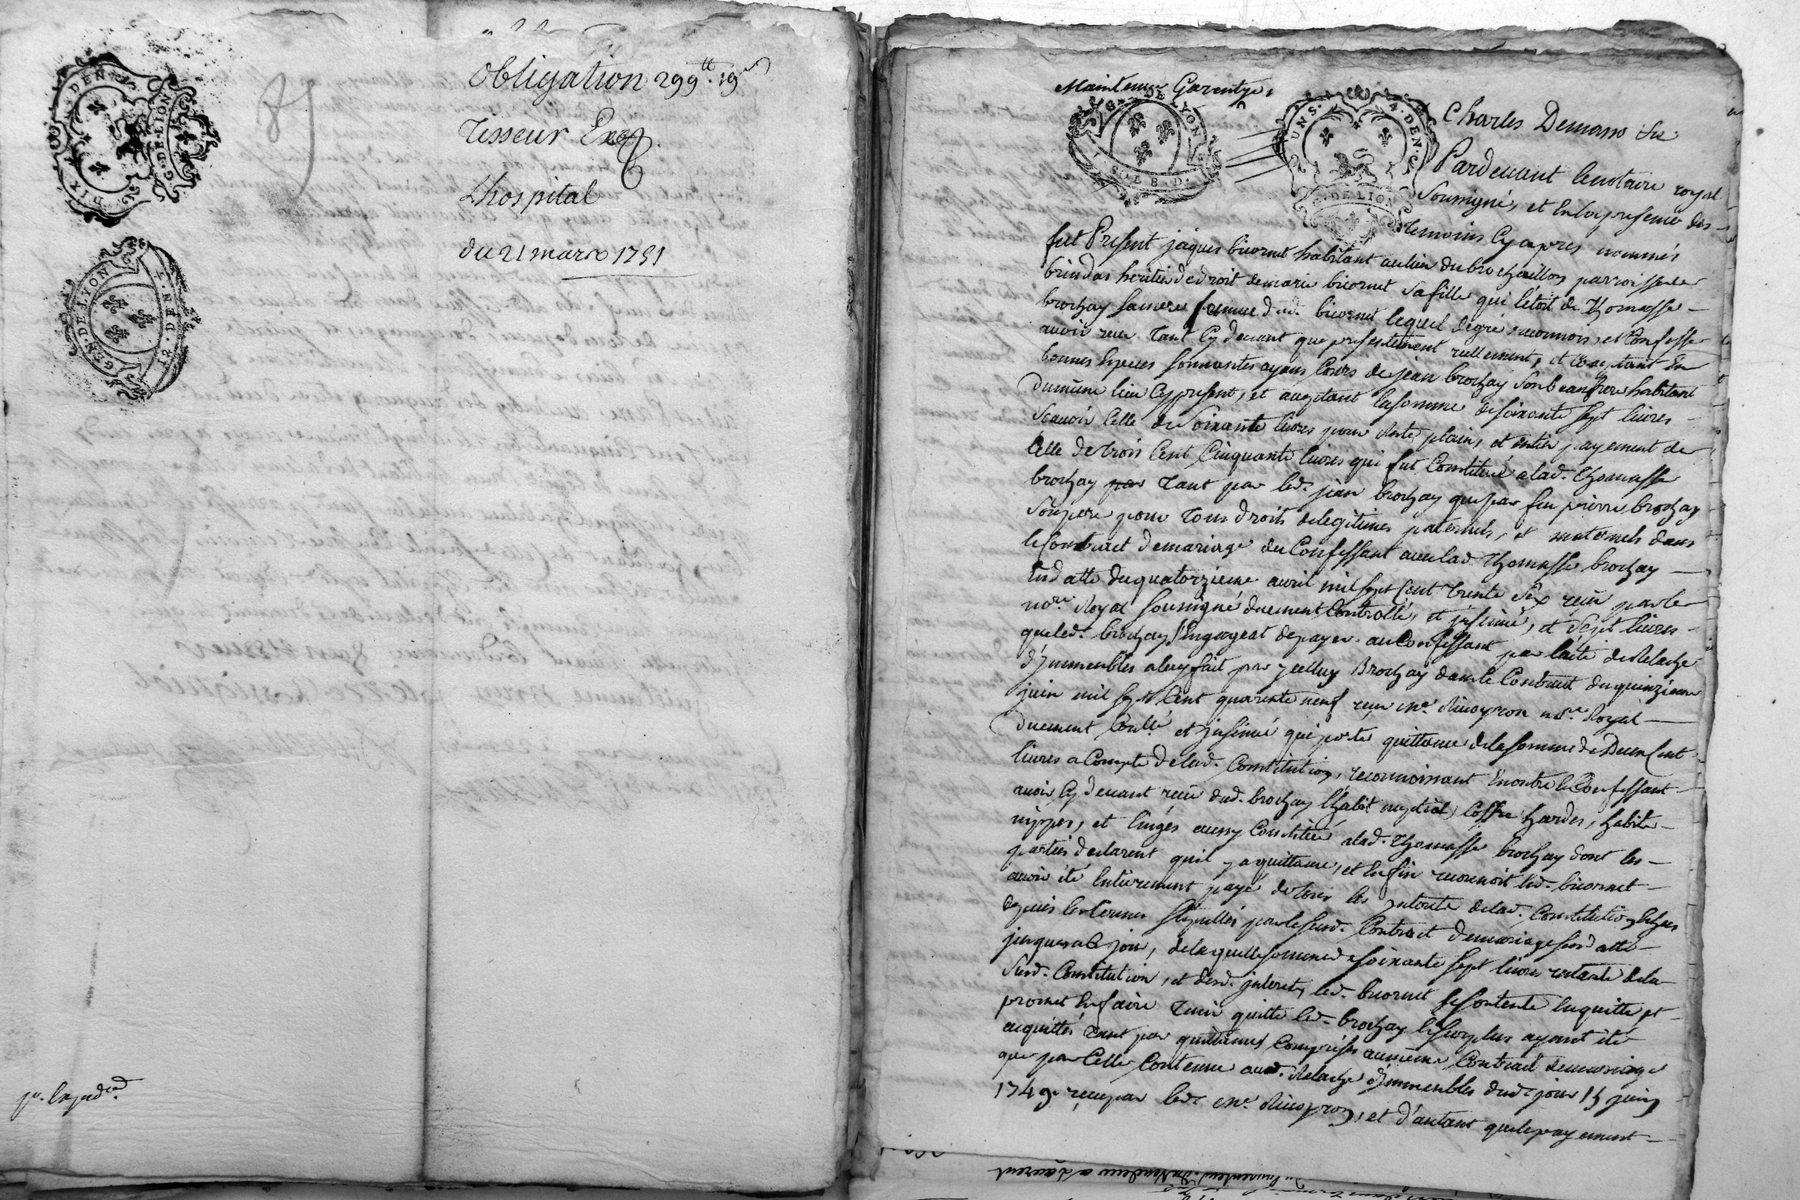 Obligation 299tt. 19s
Tisseur
Lhospital
du 21 mars 1751
GEN. DE LYON
G. DE LION
Maintenu Garentye
Charles Demass
Pardevant le notaire royal
Soussigné, et en la presence des
temoins cy apres nommés
fut Present jaques bicornet habitant au lieu du brochaillon parroisse de
brindas heritier de droit de marie bicornet sa fille qui l'etoit de Thomasse
brochay femme dud. bicornet lequel de gré reconnois, et Confesse
avoir receu tant cy devant que presentement reellement, et Comptant en
bonnes Especes sonnantes ayans Cours de jean brochay son beaufrere habitant
du même lieu cy present, et acceptant la somme de soixante sept livres
Scavoir Celle de Soixante livres pour reste plain, et entier payement de
Celle de trois Cent Cinquante livres qui fut Constituée a lad. Thomasse
brochay par tant par led. jean brochay que par feu pierre brochay
Son pere pour tous droits de legitimes paternels, et maternels dans
le Contract de mariage du Confessant avec lad. Thomasse brochay
en datte du quatorzieme avril mil sept Cent trente Six receu par le
nore. Royal soussigné duement Controllé, et insinué, et Sept livres
que led. brochay s'Engageat de payer au Confessant par l'acte de Relache
d'Immeubles a luy fait par y celluy Brochay dans le Contract du quinzieme
juin mil sept Cent quarante neuf receu me. nore. Royal
duement Contlé et insinué qui porte quittance de la somme de Deux Cent
livres a Compte de lad. Constitution, reconnoissant Encontre le Confessant
avoir cy devant receu dud. brochay l'habit nuptial, Coffre, hardes, habits
nippes, et linges aussy Constitué a lad. Thomasse brochay dont les
parties declarent qu'il y a quittance, et Enfin reconnoit led. bicornet
avoir été Entierement payé de tous les interets de lad. Constitution Echus
depuis les termes stipullés par le susd. Contract de mariage susd atté
jusques a ce jour, de laquelle somme de soixante sept livres restante de la
Susd. Constitution, et desd. interets, led. bicornet se Contente En quitte et
promet En faire tenir quitte led. brochay le surplus ayant été
acquittés tant par quittances Comprises au même Contract de mariage
que par Celle Contenue aud. Relache d'Immeubles dud. jour 15 juin
1749. receu par led. me. et d'autant que le payement